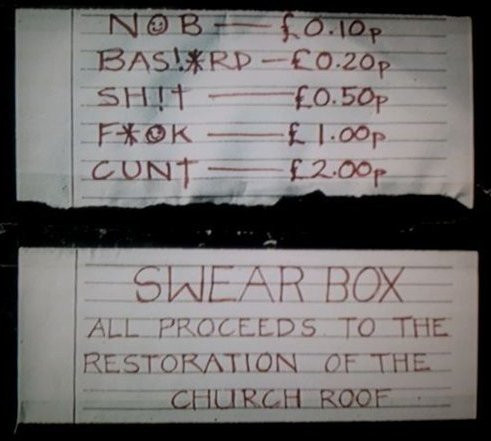 N☺B — £0.10p
BAS!*RD — £0.20p
SH!† — £0.50p
F*☺K — £1.00p
CUN† — £2.00p
SWEAR BOX
ALL PROCEEDS TO THE
RESTORATION OF THE
CHURCH ROOF